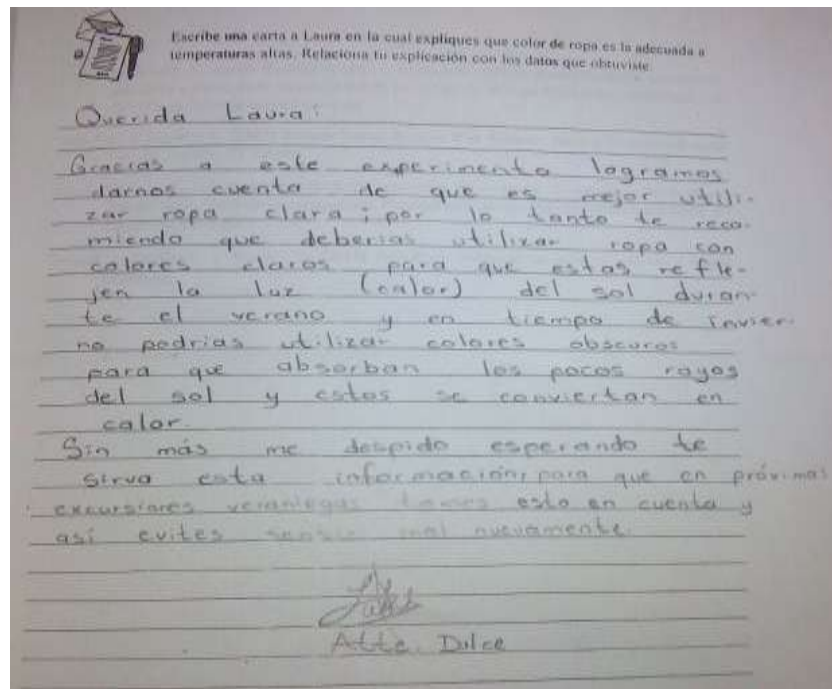 Escribe una carta a Laura en la cual expliques que color de ropa es la adecuada a
temperaturas altas. Relaciona tu explicación con los datos que obtuviste.
Querida Laura:
Gracias a este experimento logramos
darnos cuenta de que es mejor utili-
zar ropa clara; por lo tanto te reco-
miendo que deberias utilizar ropa con
colores claros para que estas refle-
jen la luz (calor) del sol duran-
te el verano y en tiempo de invier-
no podrias utilizar colores obscuros
para que absorban los pocos rayos
del sol y estos se conviertan en
calor.
Sin más me despido esperando te
sirva esta información, para que en próximas
excursiones veraniegas tomes esto en cuenta y
así evites sentir mal nuevamente.
Atte. Dulce